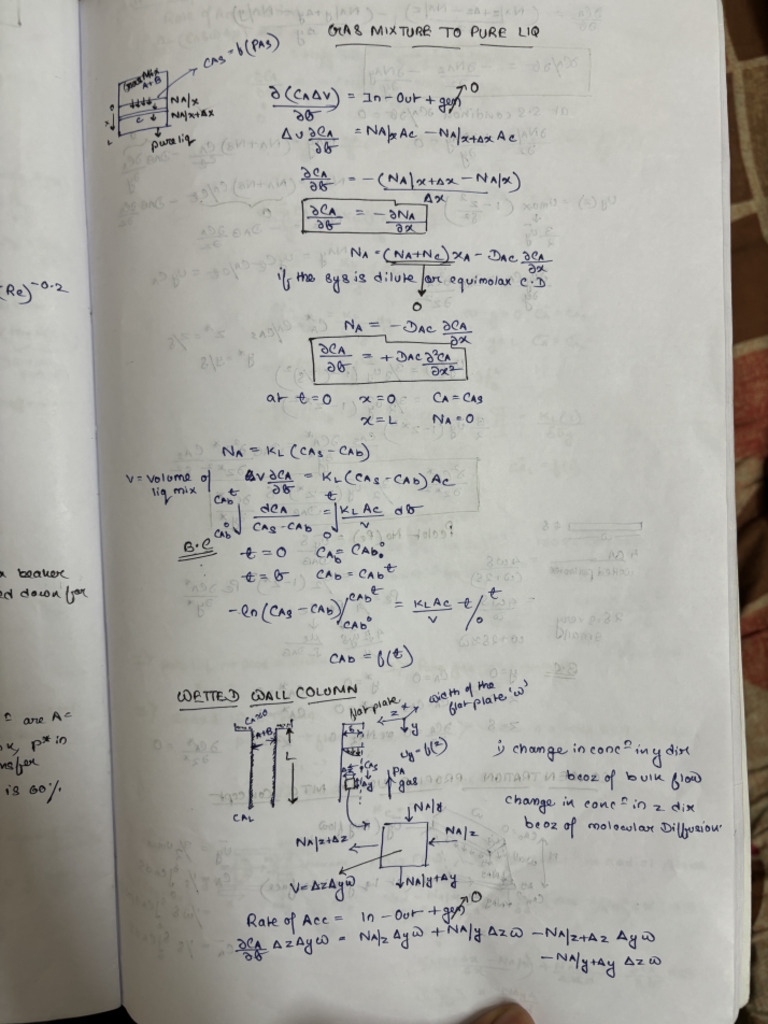 GAS MIXTURE TO PURE LIQ
CAS = f(PAS)
Gas Mix
A+B
NA/x
NA/x+Δx
C
pure liq
∂(CAΔV)/∂θ = In - Out + gen → 0
ΔV ∂CA/∂θ = NA/x AC - NA/x+Δx AC
∂CA/∂θ = -(NA/x+Δx - NA/x)/Δx
∂CA/∂θ = -∂NA/∂x
NA = (NA+NC) xA - DAC ∂CA/∂x
if the sys is dilute or equimolar C.D
0
NA = - DAC ∂CA/∂x
∂CA/∂θ = + DAC ∂²CA/∂x²
at t=0 x=0 CA = CAS
x=L NA=0
NA = KL (CAS - CAb)
V = volume of liq mix
ΔV ∂CA/∂θ = KL (CAS - CAb) AC
∫CAb° CAbt dCA/CAS-CAb = ∫0 t KL AC/V dθ
B.C t=0 CAb = CAb°
t=θ CAb = CAbt
-ln(CAS - CAb)/CAb° CAbt = KLAC/V t/0 t
CAb = f(t)
WETTED WALL COLUMN
flat plate
width of the flat plate 'w'
z x
y
CA=0
A+B
L
CAL
uy = f(z)
CAS
Δy
PA
gas
i) change in concⁿ in y dir
becoz of bulk flow
change in concⁿ in z dir
becoz of molecular Diffusion.
NA/y
NA/z+Δz
NA/z
V = ΔzΔyw
NA/y+Δy
Rate of Acc = In - Out + gen → 0
∂CA/∂θ ΔzΔyw = NA/z Δyw + NA/y Δzw - NA/z+Δz Δyw
- NA/y+Δy Δzw
(Re)^-0.2
beaker
ed down for
are A=
p* in
nsfer
is 60%